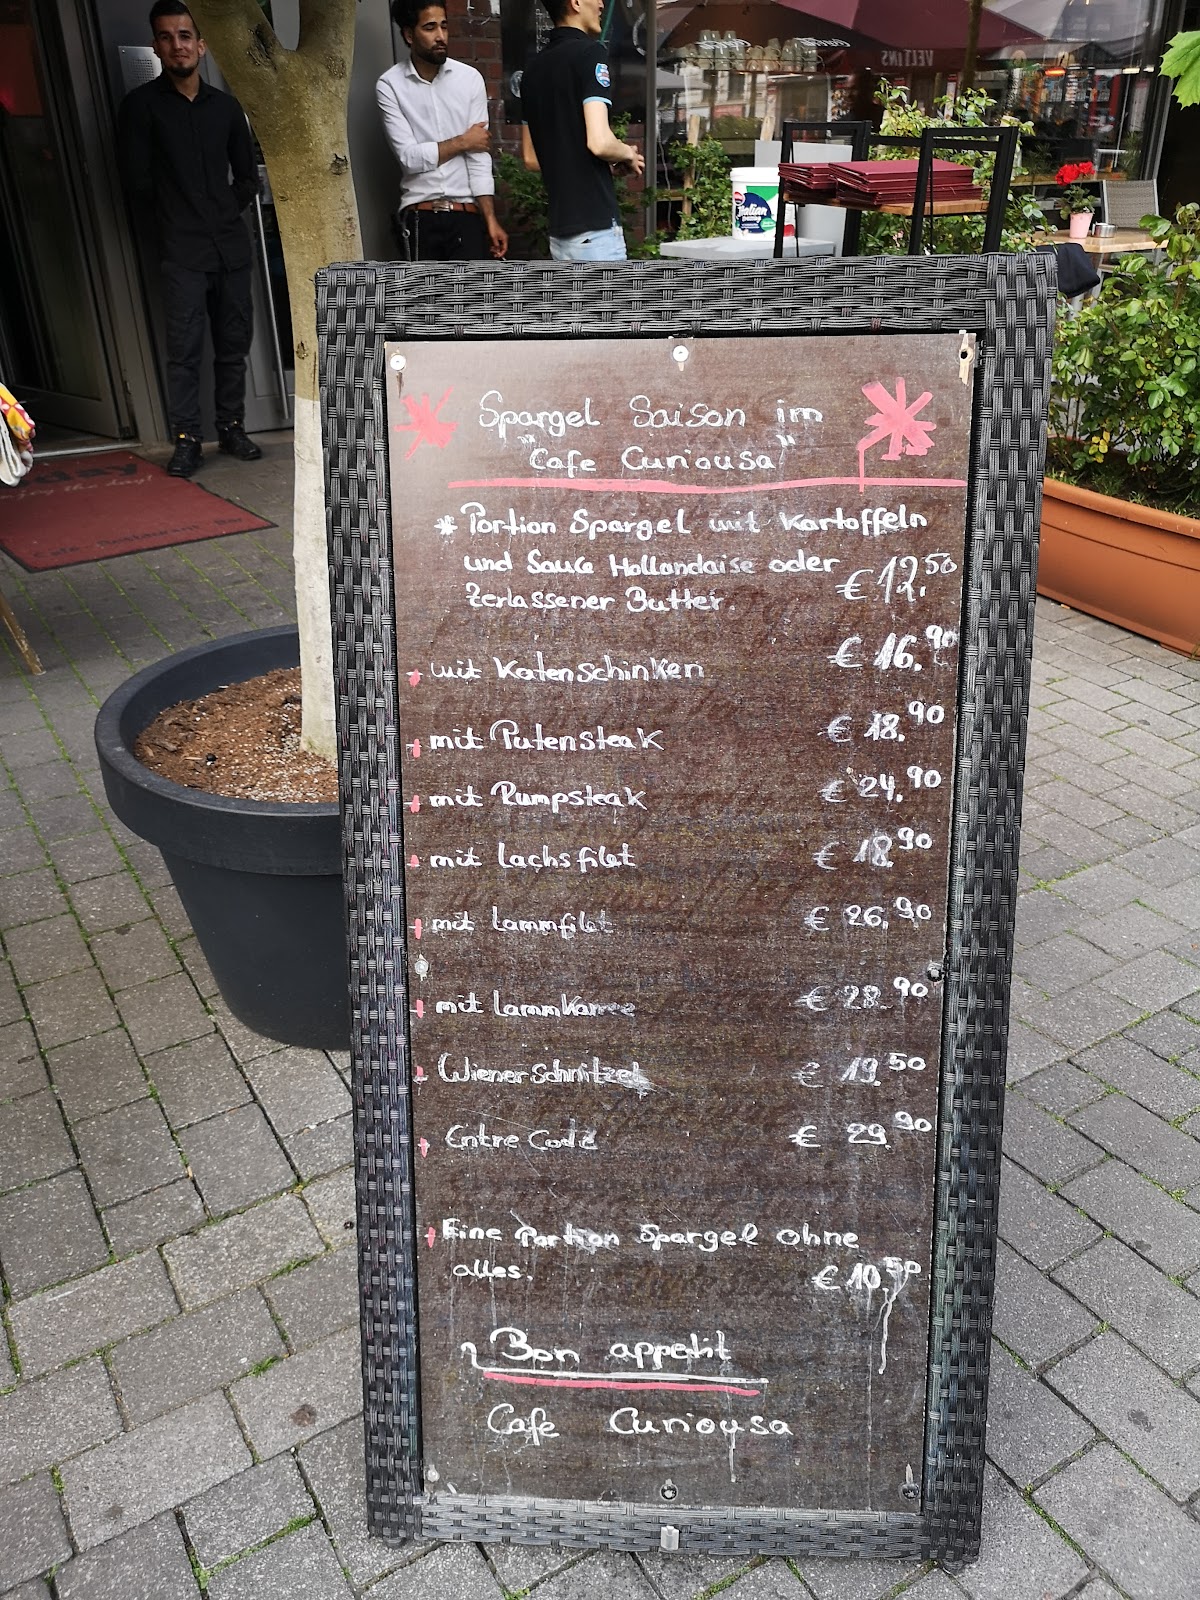 VELTINS
Italian
day
Cafe Restaurant Bar
Spargel Saison im
"Cafe Curiousa"
* Portion Spargel mit Kartoffeln
und Sauce Hollandaise oder
Zerlassener Butter. € 12.50
+ mit Katenschinken € 16.90
+ mit Putensteak € 18.90
+ mit Rumpsteak € 24.90
+ mit Lachsfilet € 18.90
+ mit Lammfilet € 26.90
+ mit Lammkarree € 28.90
+ Wiener Schnitzel € 19.50
+ Entre Cote € 29.90
+ Eine Portion Spargel ohne
alles. € 10.50
Bon appetit
Cafe Curiousa